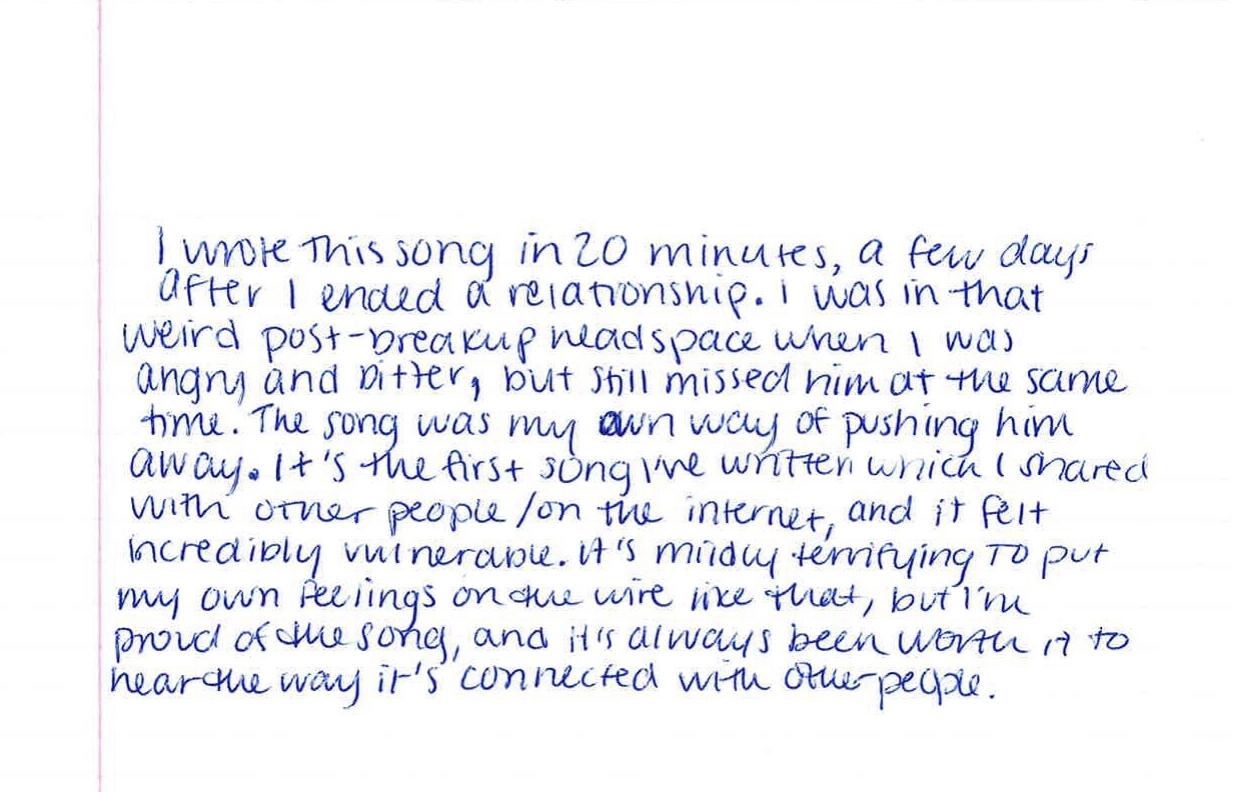 I wrote this song in 20 minutes, a few days
after I ended a relationship. I was in that
weird post-breakup headspace when I was
angry and bitter, but still missed him at the same
time. The song was my own way of pushing him
away. It's the first song I've written which I shared
with other people/on the internet, and it felt
incredibly vulnerable. It's mildly terrifying to put
my own feelings on the wire like that, but I'm
proud of the song, and it's always been worth it to
hear the way it's connected with other people.